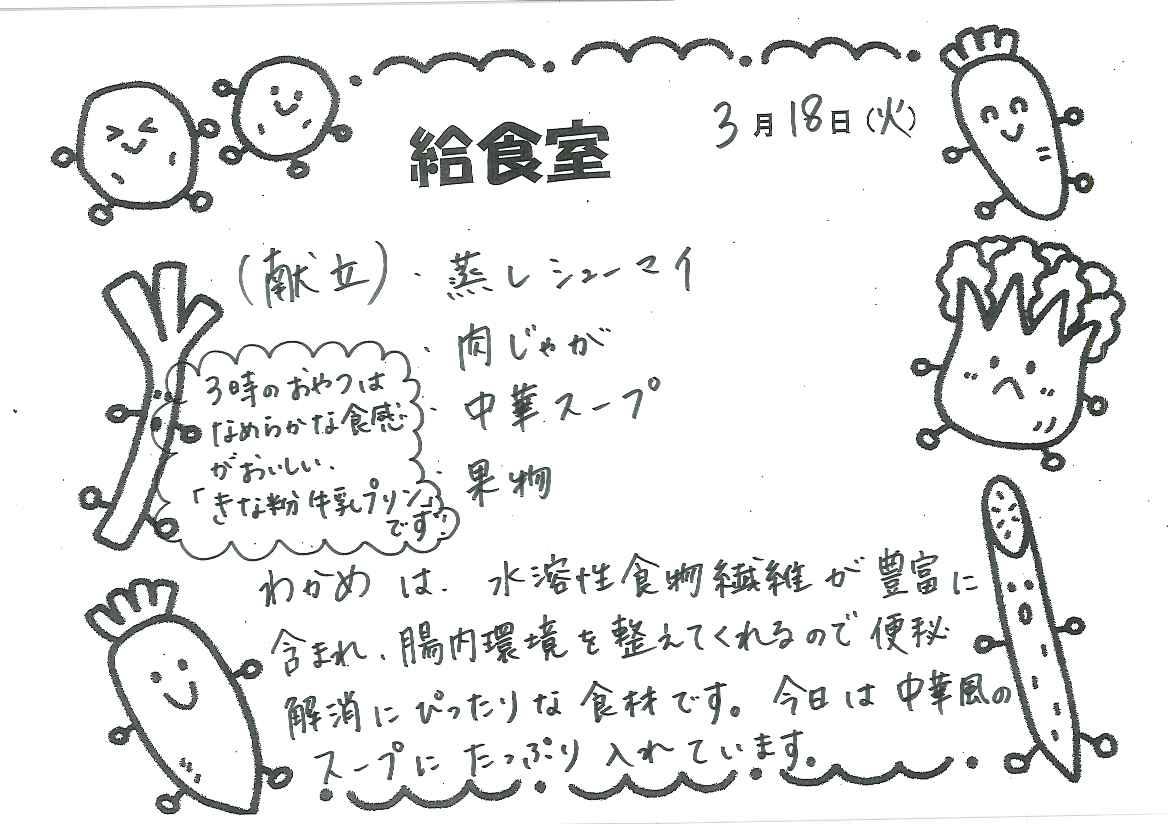 給食室
3月18日(火)
(献立)・蒸しシューマイ
・肉じゃが
・中華スープ
・果物
3時のおやつは
なめらかな食感
がおいしい、
「きな粉牛乳プリン」
です!
わかめは、水溶性食物繊維が豊富に
含まれ、腸内環境を整えてくれるので便秘
解消にぴったりな食材です。今日は中華風の
スープにたっぷり入れています。